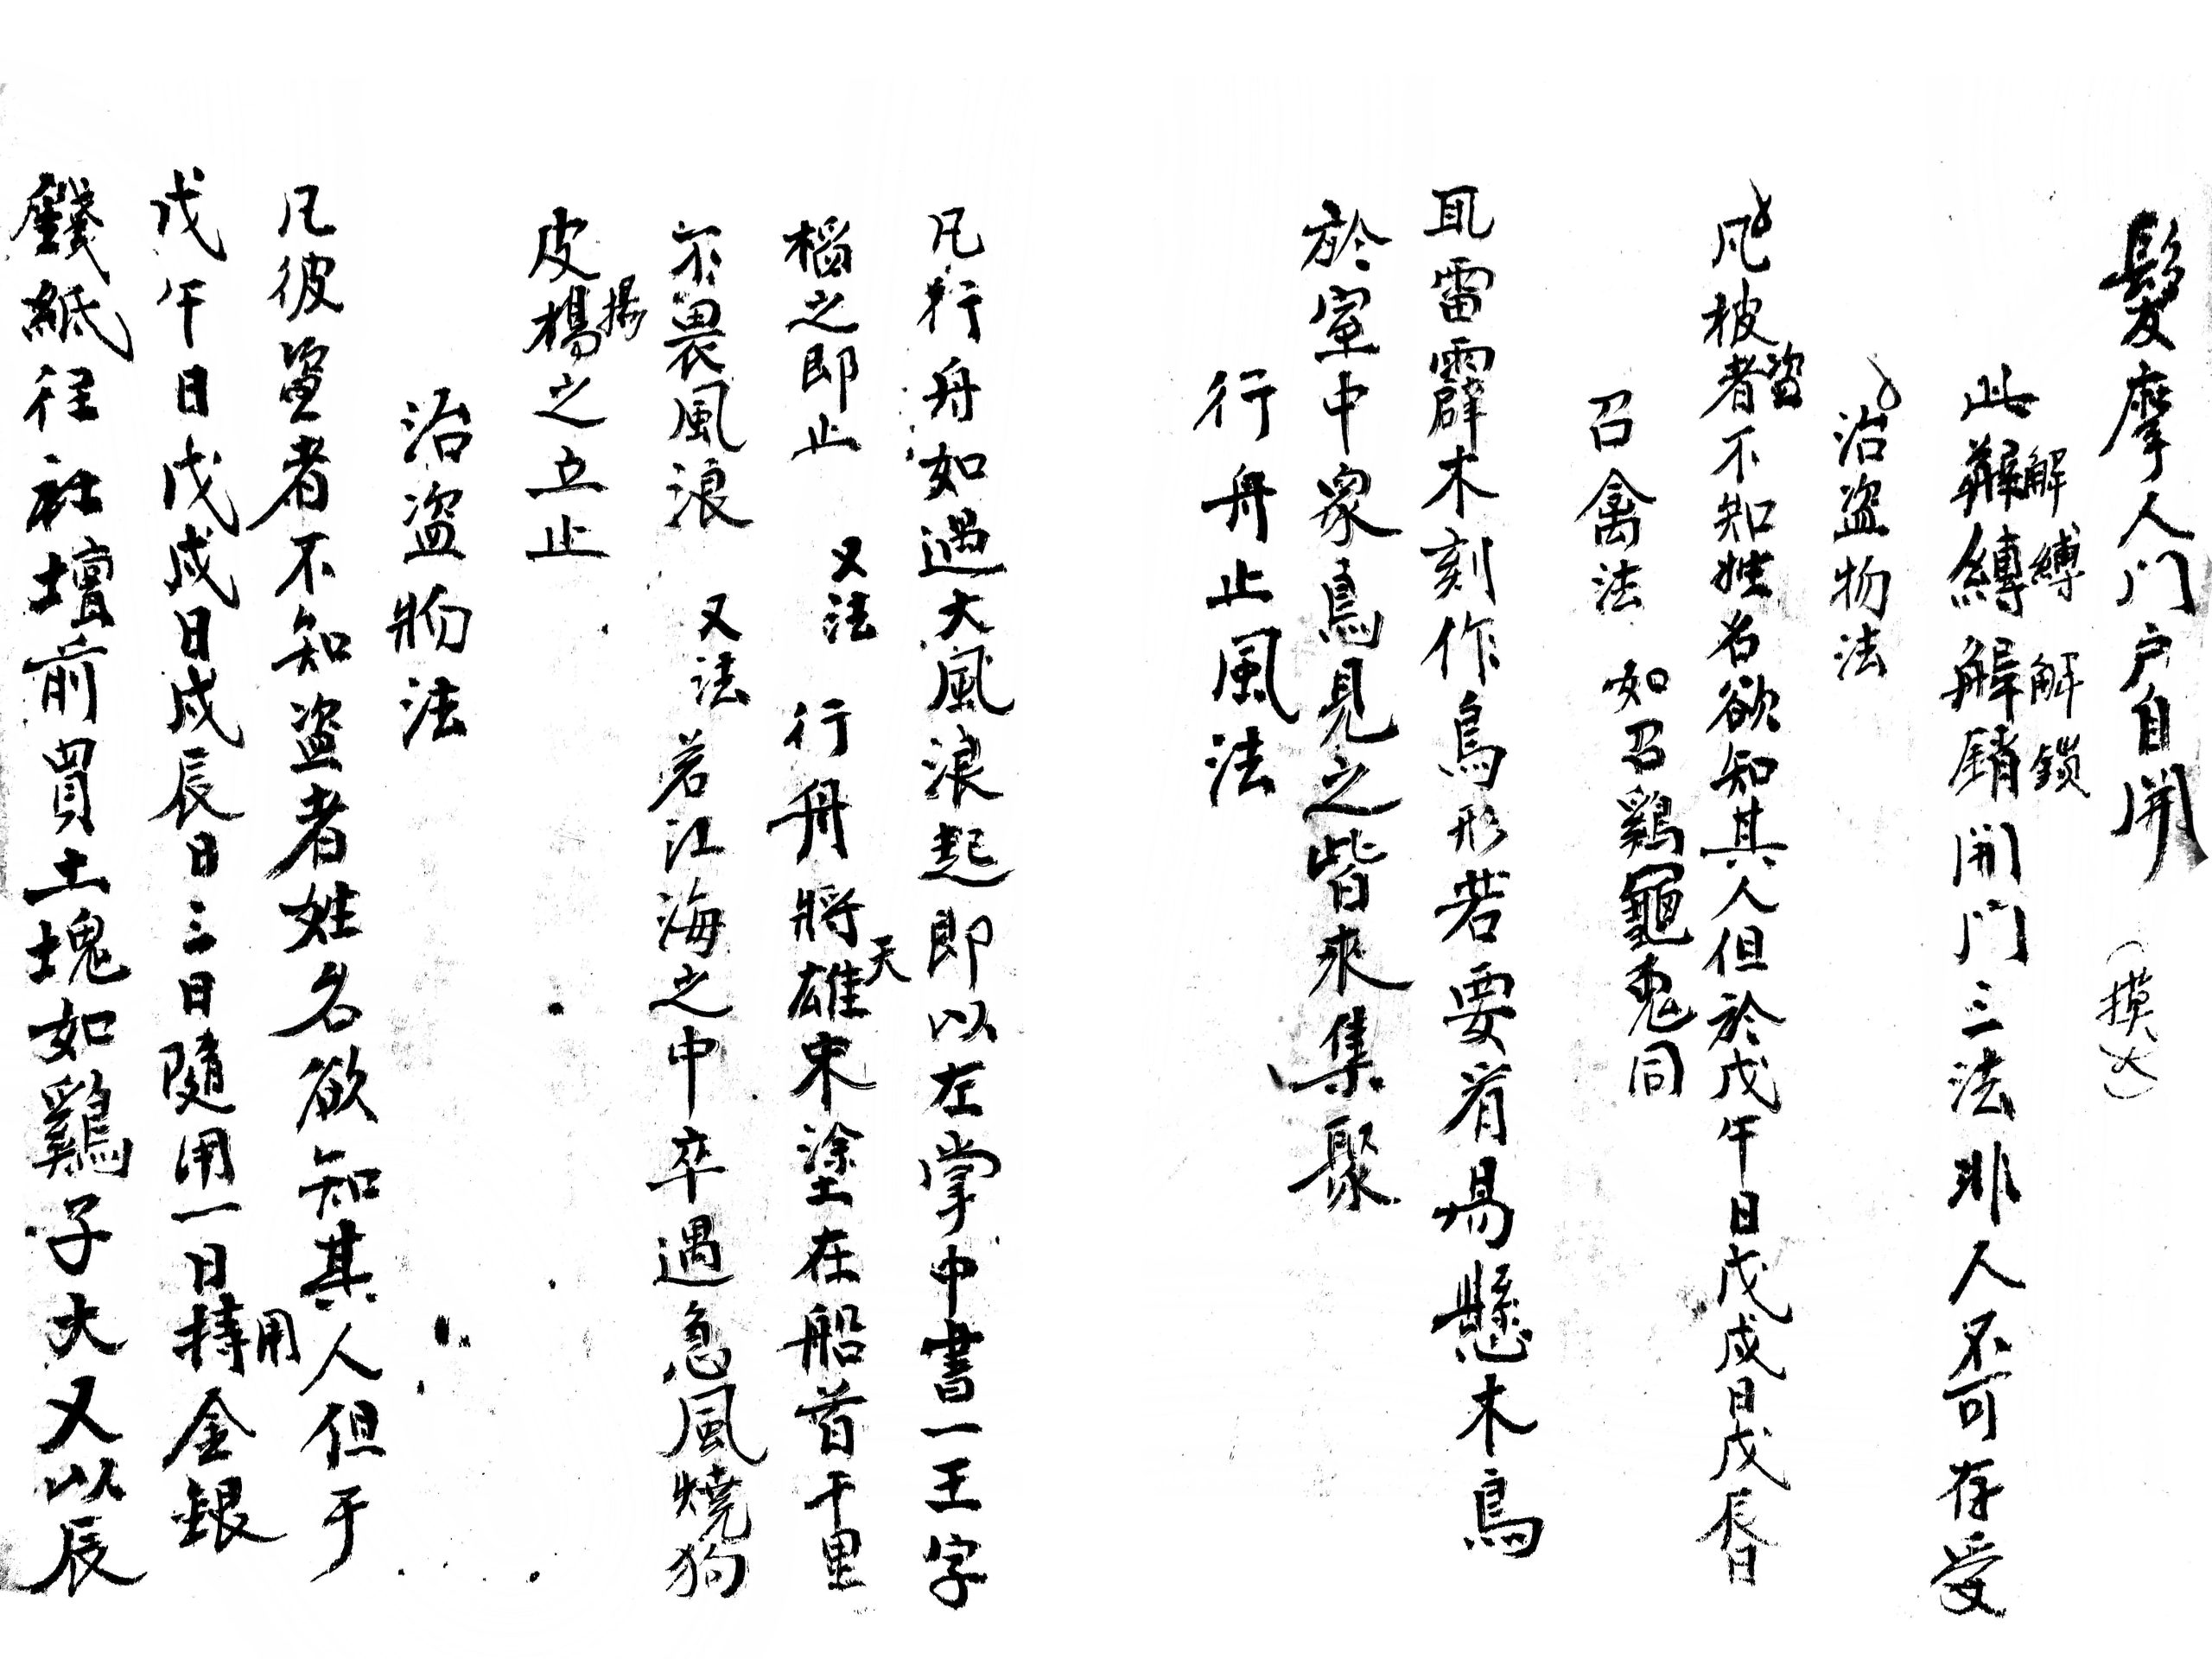 髮摩人门户自開（摸火）
此解縛解銷開门三法非人不可存受
解縛 解鎖
治盗物法
凡被者不知姓名欲知其人但於戊午日戊戌日戊辰日
盗
召禽法 如召鷄龜兔同
取雷霹木刻作鳥形若要有場懸木鳥
於室中象鳥見之皆來集聚
行舟止風法
凡行舟如過大風浪起即以左掌中書一王字
榣之即止 又法 行舟將雄朱塗在船首千里
天
不畏風浪 又法 若江海之中卒遇急風燒狗
皮楊之立止
揚
治盗物法
凡彼盗者不知盗者姓名欲知其人但于
戊午日戊戌日戊辰日三日隨用一日持金銀
用
錢紙徃社壇前買土塊如鷄子大又以辰